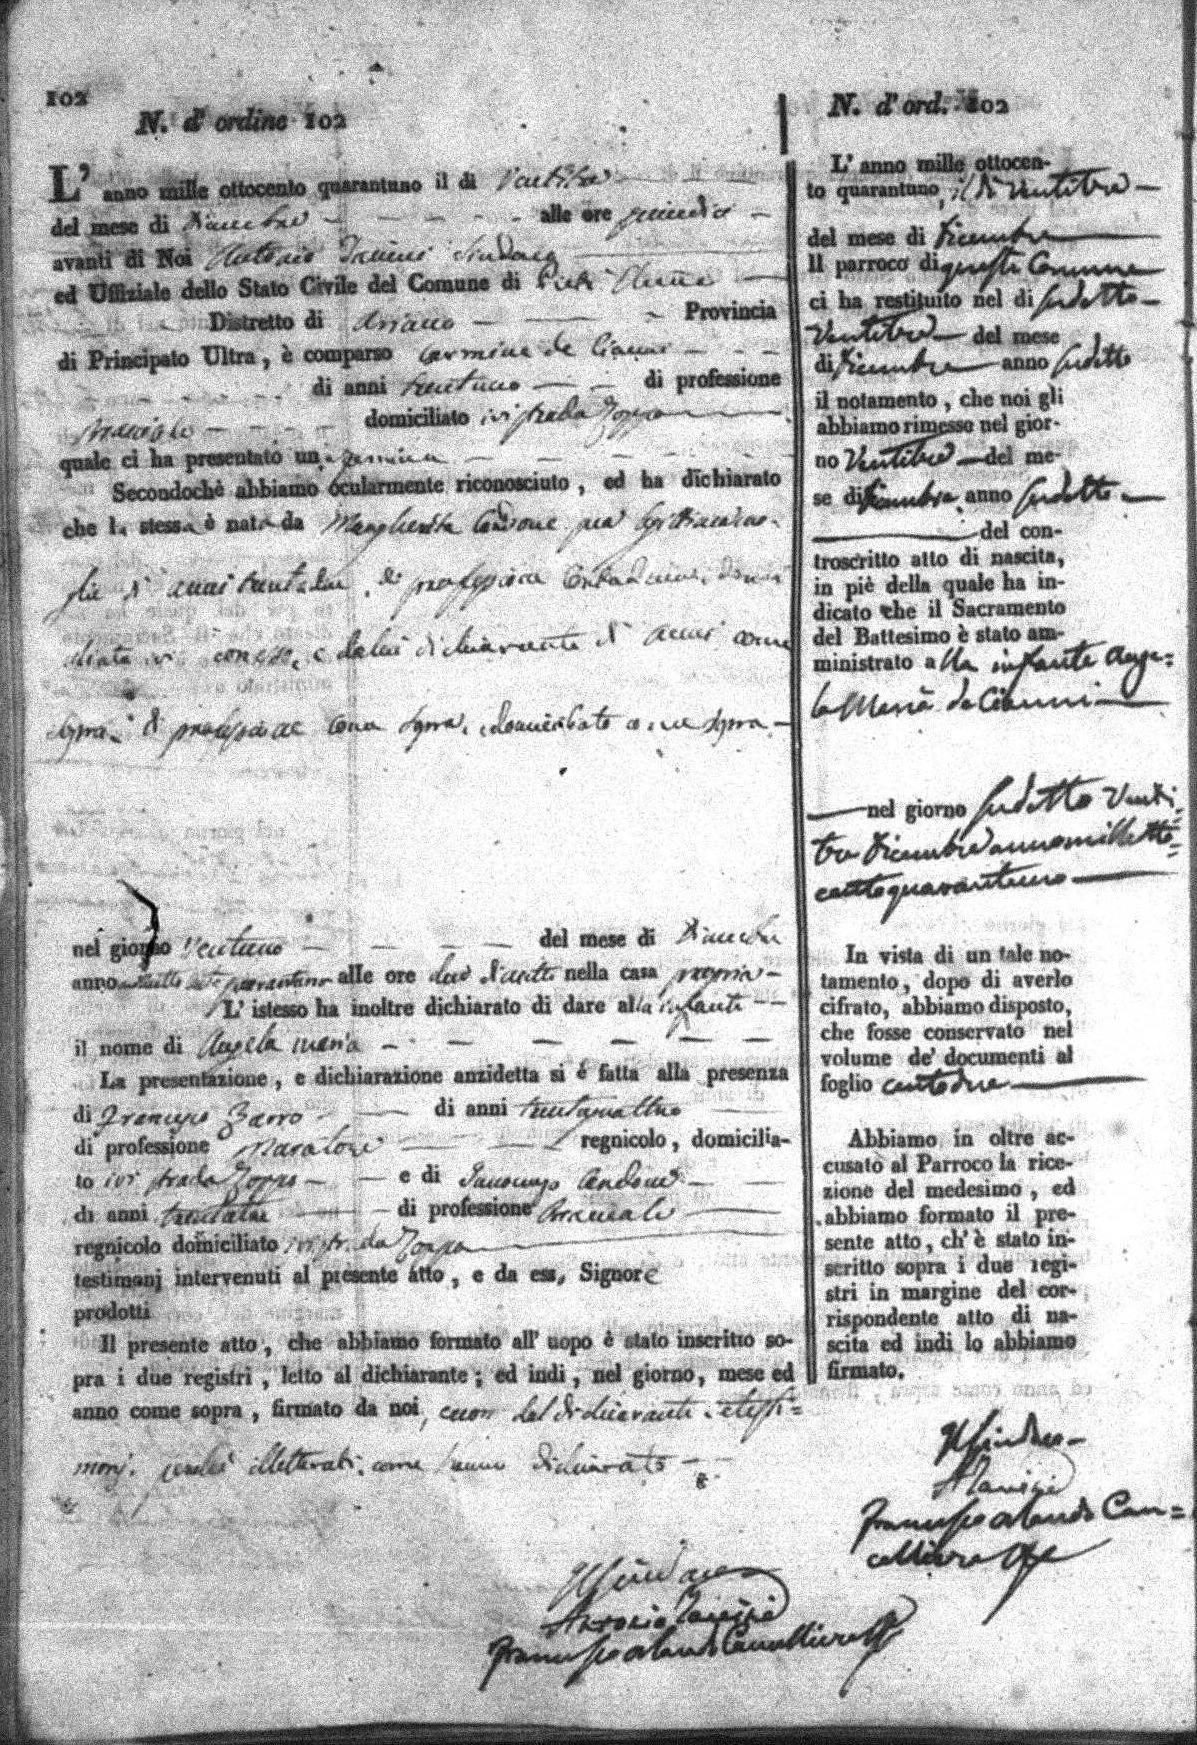 102
N. d' ordine 102
L' anno mille ottocento quarantuno il di Ventitre
del mese di Dicembre alle ore quindici
avanti di Noi Antonio Sindaco
ed Uffiziale dello Stato Civile del Comune di
Distretto di Ariano Provincia
di Principato Ultra, è comparso Carmine de Cianni
di anni trentuno di professione
domiciliato ivi strada Zoppa
quale ci ha presentato una femina
Secondochè abbiamo ocularmente riconosciuto, ed ha dichiarato
che la stessa è nata da Margherita Cardone sua
glie di anni trentadue, di professione Contadina, domi
ciliata ivi con esso, e da lui dichiarante di anni come
sopra, di professione come sopra, domiciliato come sopra
nel giorno Ventuno del mese di Dicembre
anno mille otto quarantuno alle ore due di notte nella casa propria
L' istesso ha inoltre dichiarato di dare alla infante
il nome di Angela Maria
La presentazione, e dichiarazione anzidetta si é fatta alla presenza
di Francesco Zarro di anni trentaquattro
di professione regnicolo, domicilia-
to ivi strada Zoppa e di Cardone
di anni di professione Bracciale
regnicolo domiciliato ivi strada Zoppa
testimonj intervenuti al presente atto, e da essi Signore
prodotti
Il presente atto, che abbiamo formato all' uopo è stato inscritto so-
pra i due registri, letto al dichiarante; ed indi, nel giorno, mese ed
anno come sopra, firmato da noi, e non dal dichiarante e testi=
monj, perchè illetterati, come hanno dichiarato
Il Sindaco
Antonio
Francesco Orlando Cancelliere
N. d' ord. 102
L' anno mille ottocen-
to quarantuno, il di Ventitre
del mese di Dicembre
Il parroco di questo Comune
ci ha restituito nel di sudetto
Ventitre del mese
di Dicembre anno sudetto
il notamento, che noi gli
abbiamo rimesso nel gior-
no Ventitre del me-
se di Dicembre anno sudetto
del con-
troscritto atto di nascita,
in piè della quale ha in-
dicato che il Sacramento
del Battesimo è stato am-
ministrato alla infante Ange=
la Maria de Cianni
nel giorno sudetto Venti
tre Dicembre anno mille otto=
cento quarantuno
In vista di un tale no-
tamento, dopo di averlo
cifrato, abbiamo disposto,
che fosse conservato nel
volume de' documenti al
foglio centodue
Abbiamo in oltre ac-
cusato al Parroco la rice-
zione del medesimo, ed
abbiamo formato il pre-
sente atto, ch' è stato in-
scritto sopra i due regi-
stri in margine del cor-
rispondente atto di na-
scita ed indi lo abbiamo
firmato.
Il Sindaco
Francesco Orlando Can=
celliere